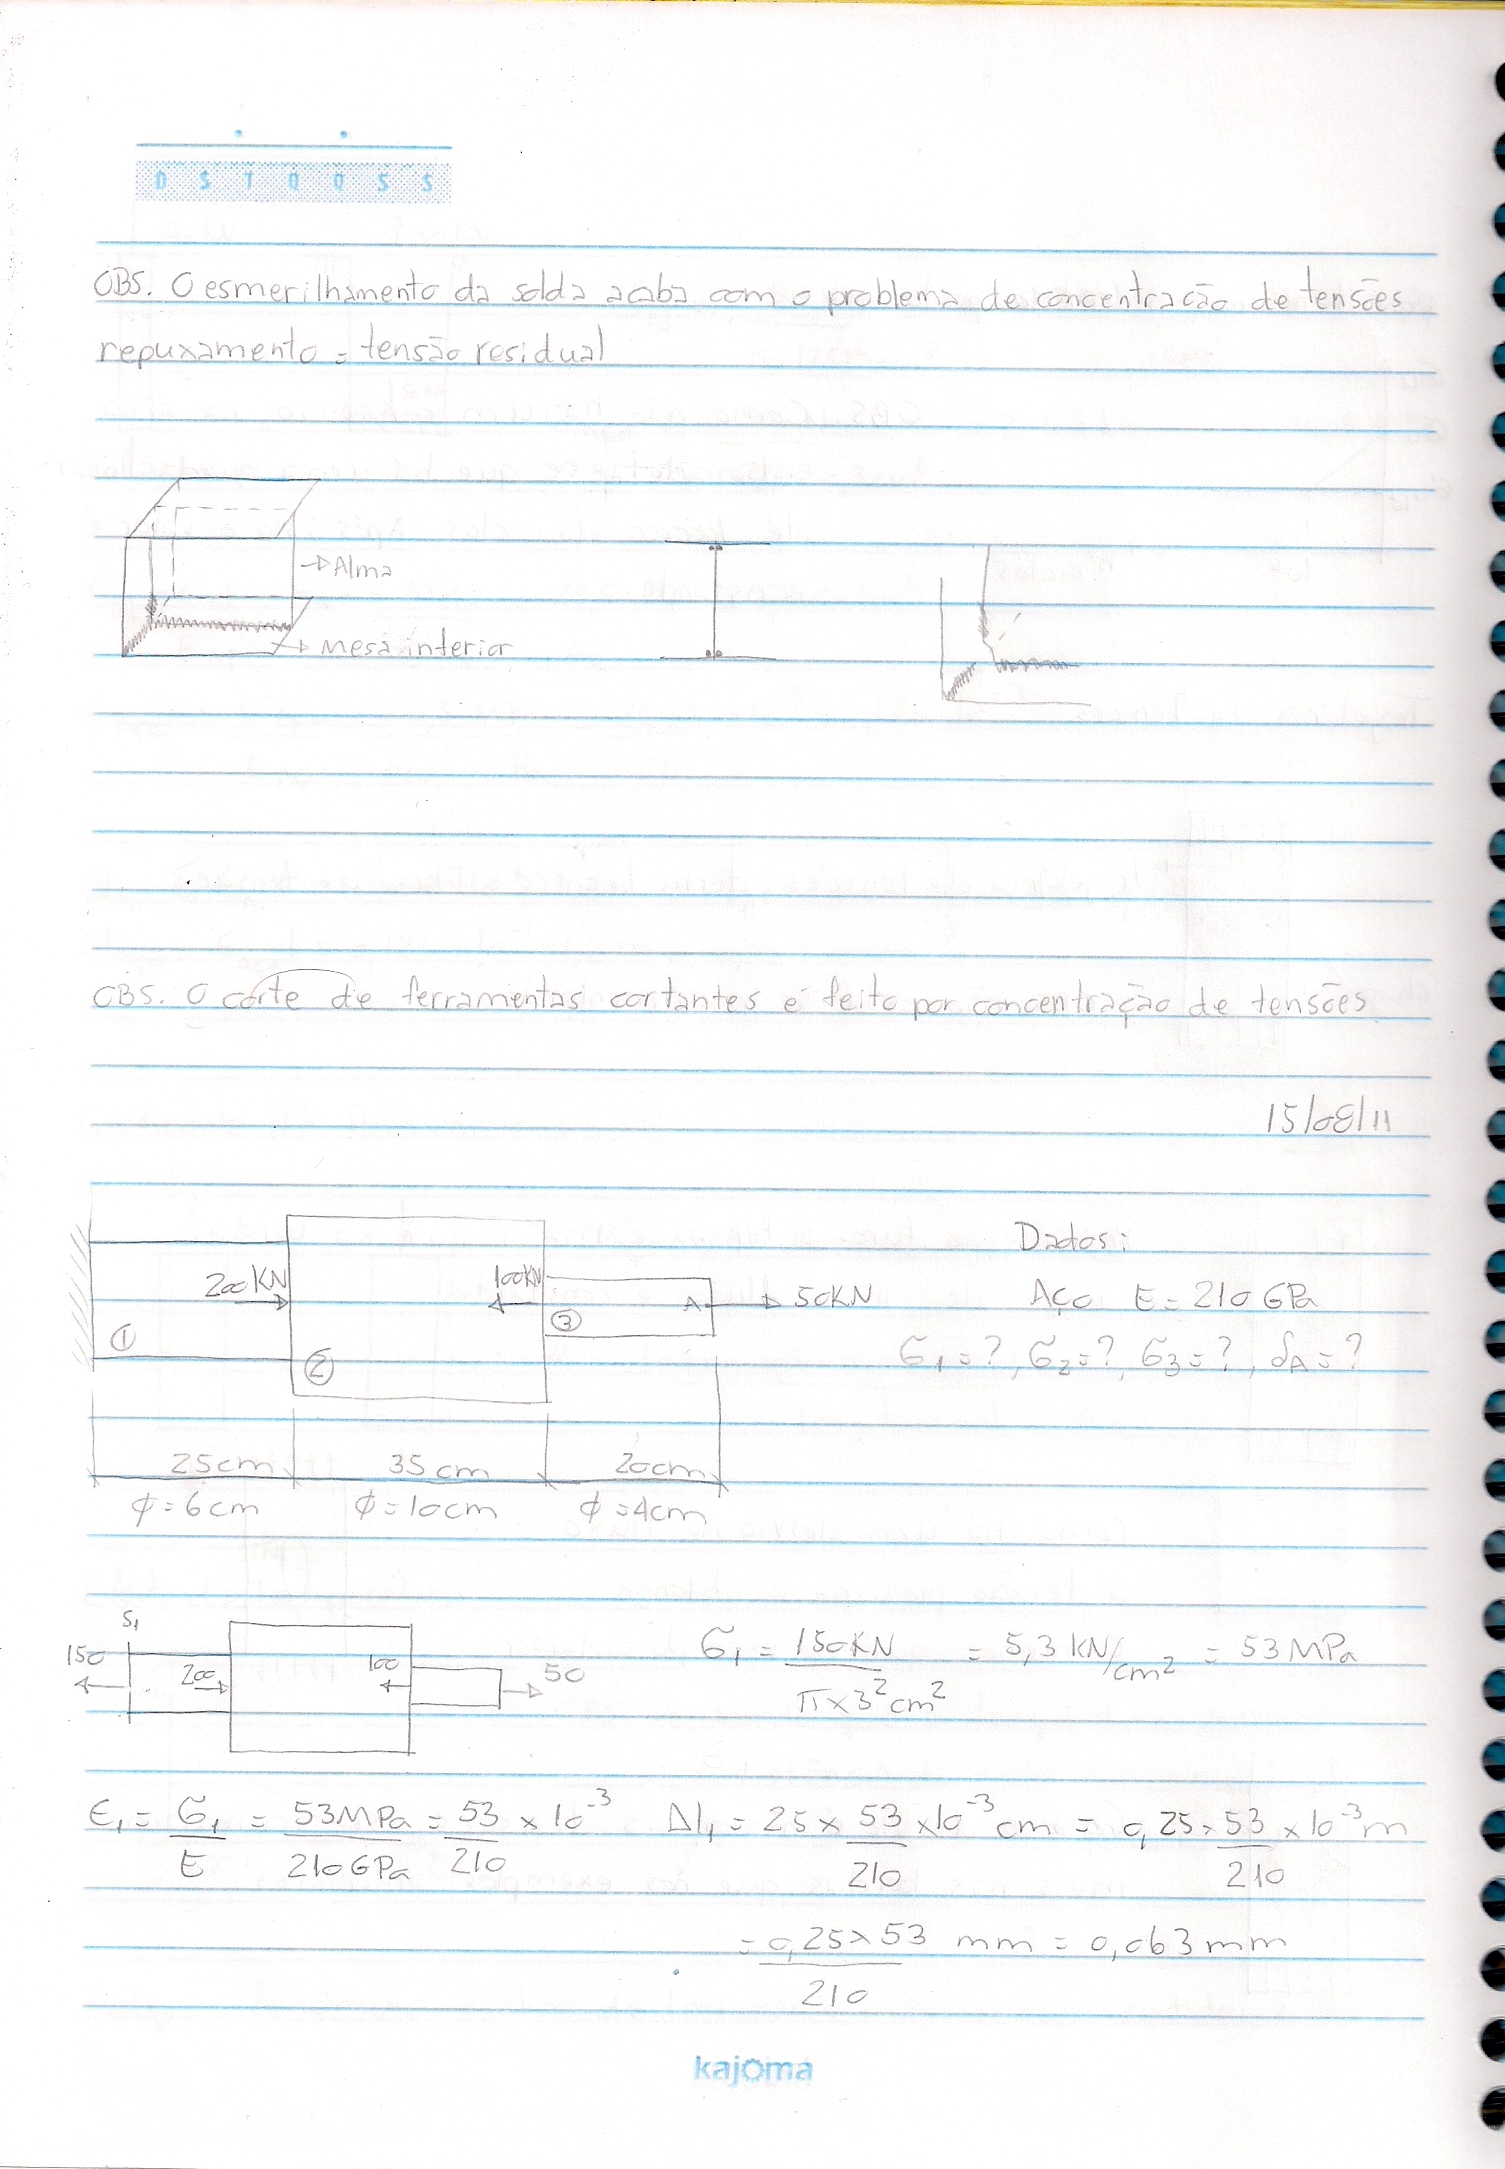 D S T Q Q S S
OBS. O esmerilhamento da solda acaba com o problema de concentração de tensões
repuxamento = tensão residual
Alma
Mesa inferior
OBS. O corte de ferramentas cortantes é feito por concentração de tensões
15/08/11
Dados:
200KN 100KN A 50KN Aço E = 210 GPa
① ② ③ σ1 = ?, σ2 = ?, σ3 = ?, δA = ?
25cm 35cm 20cm
ϕ = 6cm ϕ = 10cm ϕ = 4cm
S1
150 200 100 50 σ1 = 150KN / π x 3² cm² = 5,3 KN/cm² = 53 MPa
ϵ1 = σ1 / E = 53MPa / 210GPa = 53 / 210 x 10⁻³ Δl1 = 25 x 53 / 210 x 10⁻³ cm = 0,25 x 53 / 210 x 10⁻³ m
= 0,25 x 53 / 210 mm = 0,063 mm
kajoma